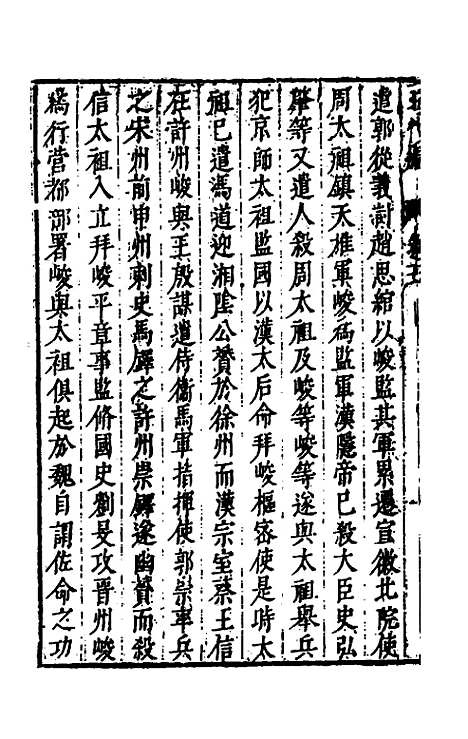 遣郭從義討趙思綰以峻監其軍累遷宣徽北院使
周太祖鎮天雄軍峻為監軍漢隱帝已殺大臣史弘
肇等又遣人殺周太祖及峻等峻等遂與太祖舉兵
犯京師太祖監國以漢太后命拜峻樞密使是時太
祖已遣馮道迎湘陰公贇於徐州而漢宗室蔡王信
在許州峻與王殷謀遣侍衞馬軍指揮使郭崇率兵
之宋州前申州刺史馬鐸之許州崇鐸遂幽贇而殺
信太祖入立拜峻平章事監脩國史劉旻攻晉州峻
爲行營都部署峻與太祖俱起於魏自謂佐命之功